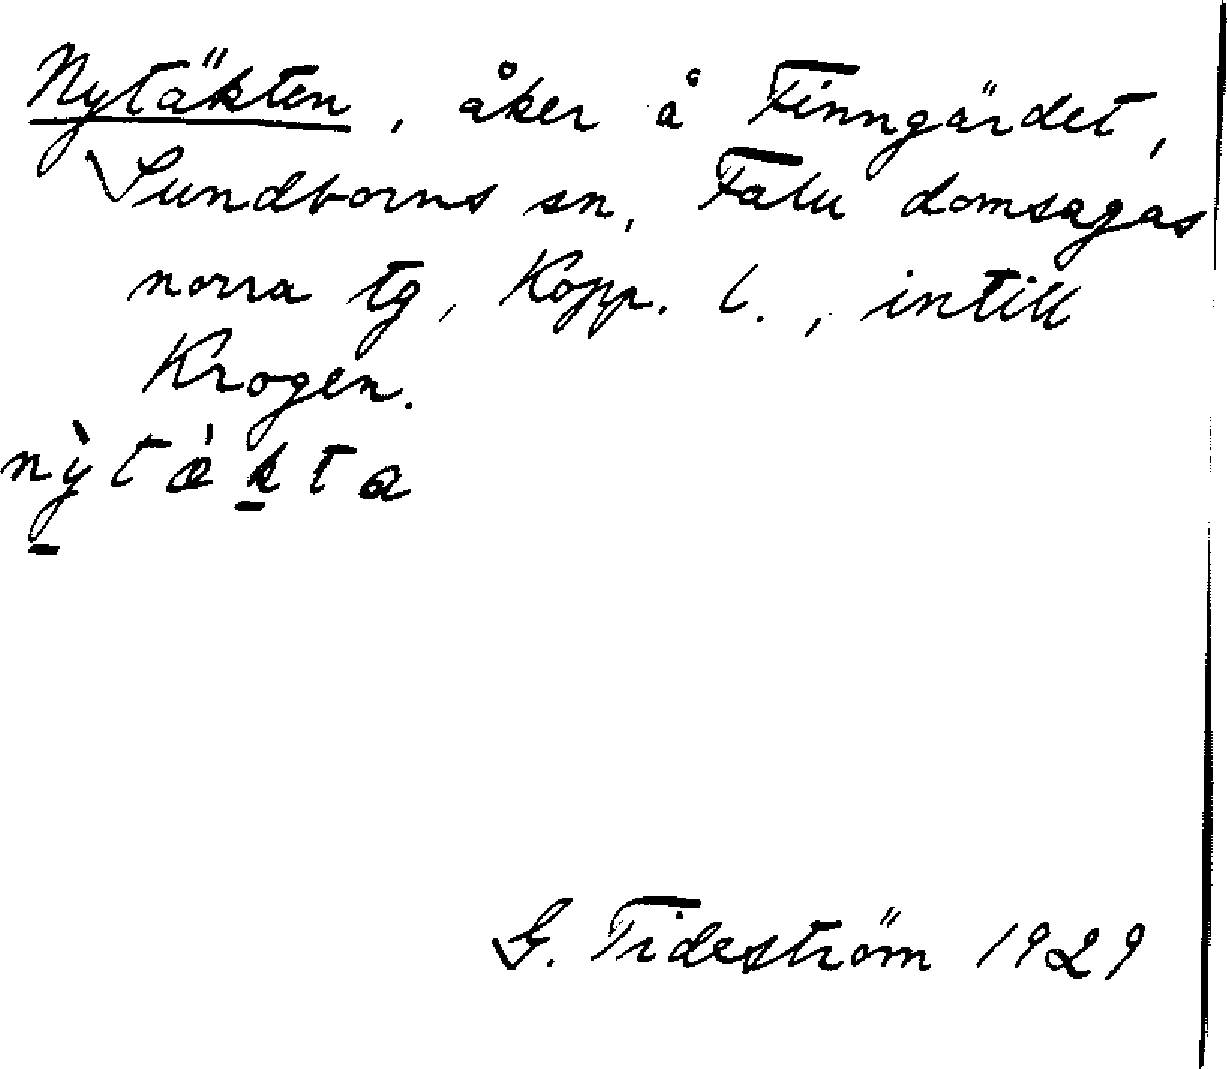 Nytäkten, åker å Finngärdet,
Sundborns sn, Falu domsagas
norra tg, Kopp. l., intill
Krogen.
nỳtǽkta
G. Tideström 1929